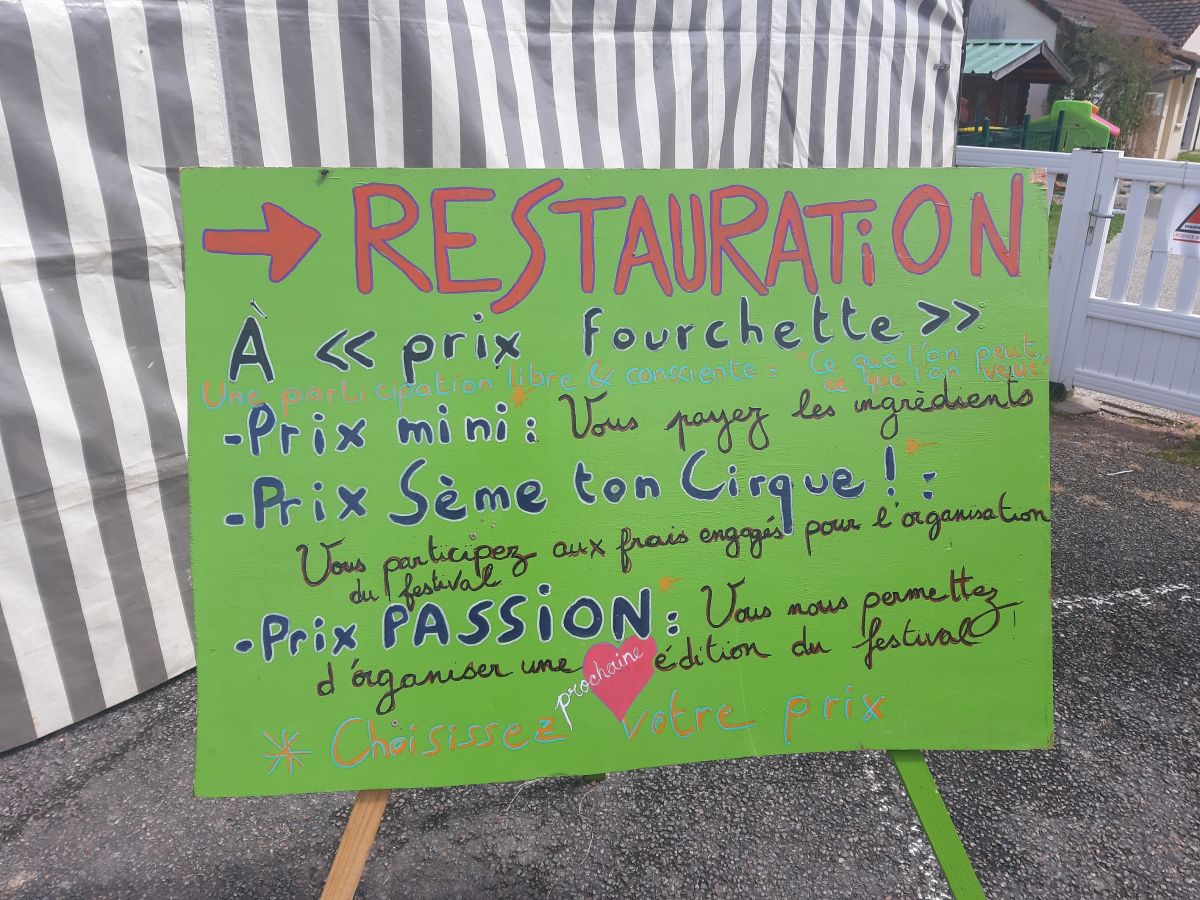 → RESTAURATiON
À << prix fourchette >>
Une participation libre & consciente : "Ce que l'on peut,
ce que l'on veut"
- Prix mini* : Vous payez les ingrèdients
- Prix Sème ton Cirque !* :
Vous participez aux frais engagés pour l'organisation
du festival
- Prix PASSiON* : Vous nous permettez
d'órganiser une prochaine édition du festival
* Choisissez votre prix